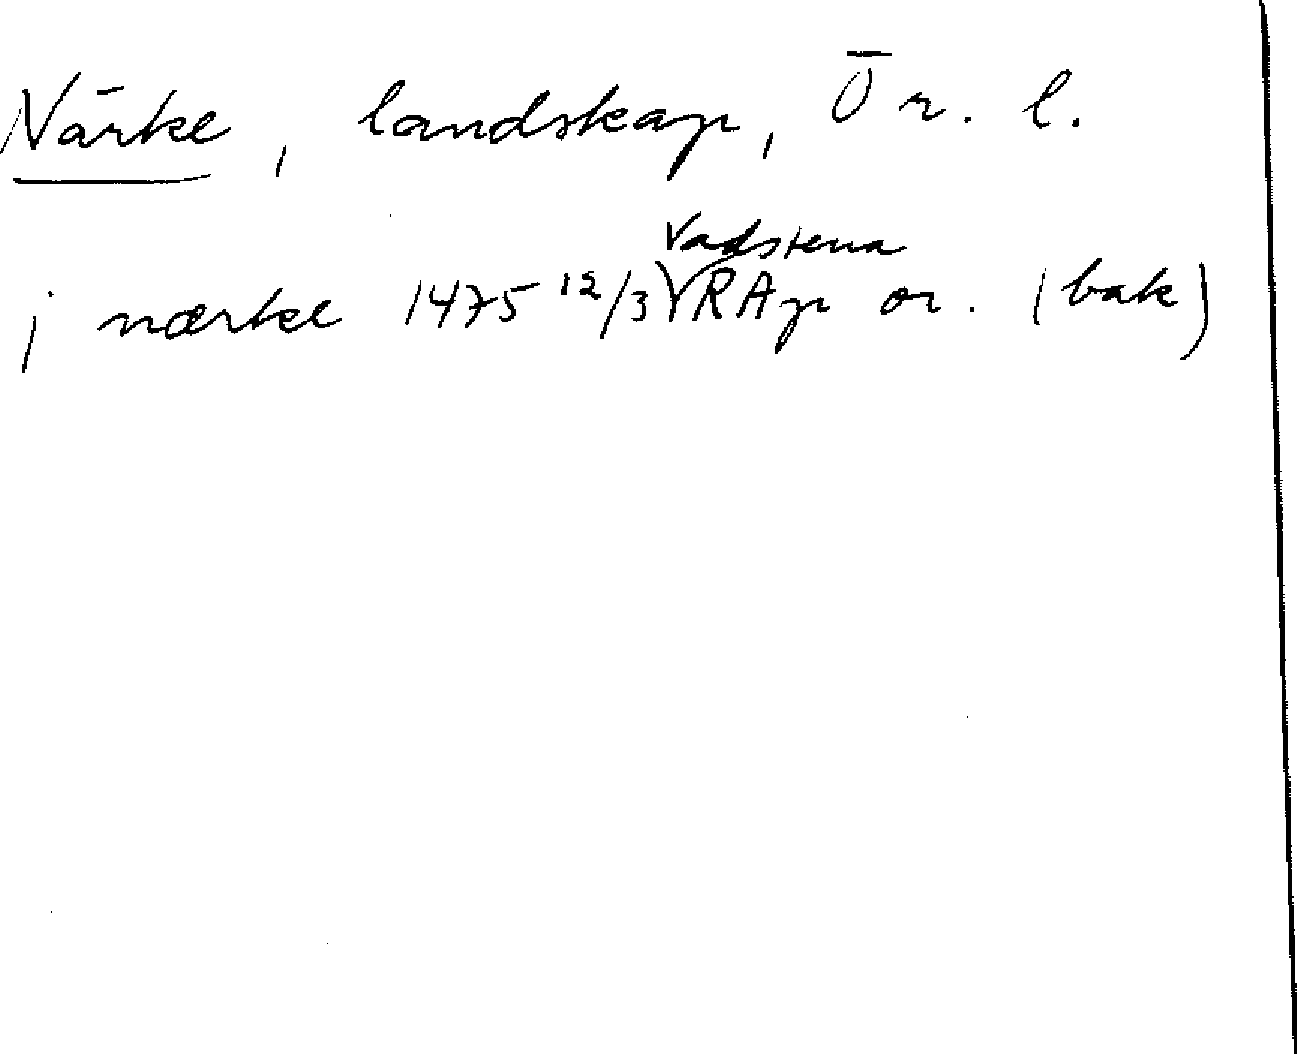 Närke, landskap, Ör. l.
Vadstena
j nærke 1475 12/3 RAp or. (bak)